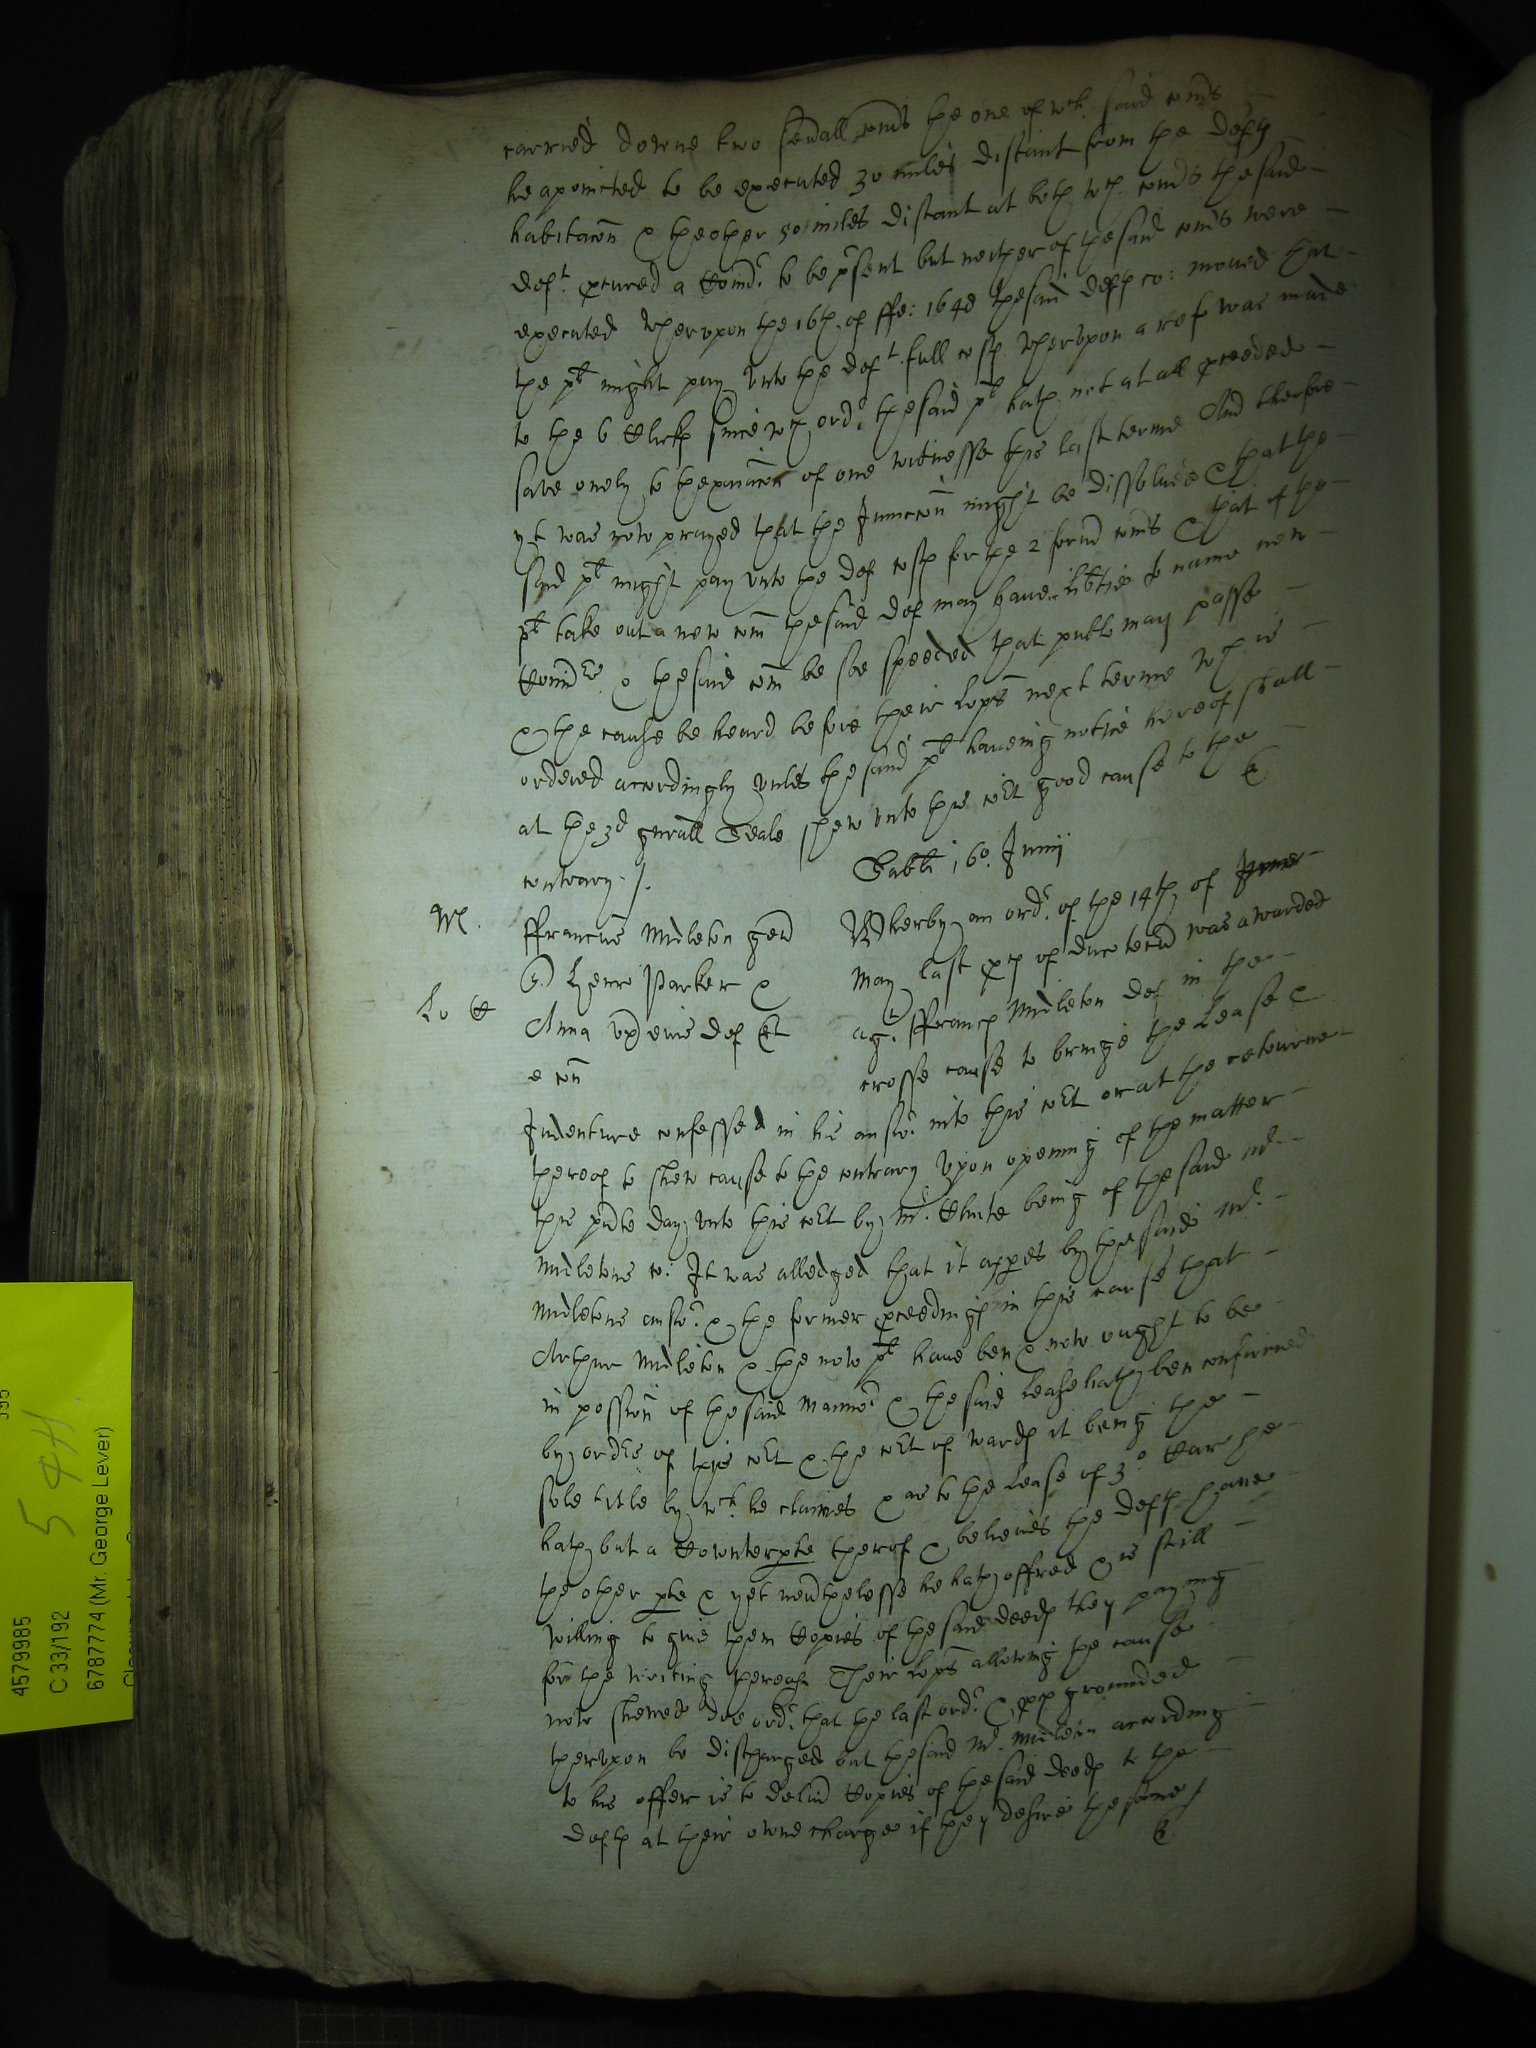 carried downe two sevall comds the one of wch said comds
he apointed to be executed 30 miles distant from the defts
habitacon & the other 50 miles distant at both wch comds the said
deft pcured a Comdr to be psent but neither of the said comds were
executed Whervpon the 16th of ffe: 1648 the said defts co: moued that
the plt might pay vnto the deft full costs Whervpon a ref was made
to the 6 Clerks since wch ordr the said plt hath not at all pceeded
save onely to thexaminacon of one witnesse this last terme And therfore
yt was now prayed that the Iniunccon might be dissolued & that the
said plt might pay vnto the def costs for the 2 formr comds & that if the
plt take out a new com the said def may haue libtie to name new
Comdrs & the said com be soe speeded that publ may passe
& the cause be heard before their Lopps next terme wch is
ordered accordingly vnles the said plt haueing notice hereof shall
at the 3d gnrall Seale shew vnto this cort good cause to the
contrary ./.
Sabbti 16o Junij
M.
ffrancus Midleton gen
Wherby an ordr of the 14th of June
Henr Parker &
May last pcs of duc tecu was awarded
Lo
Anna vx eius def Et
agt ffrancs Midleton def in the
e con
crosse cause to bringe the Lease &
Indenture confessed in his answr into this cort or at the retourne
thereof to shew cause to the contrary Vpon opening of the matter
this pnte day vnto this cort by Mr. White being of the said Mr
Midletons co: It was alledged that it appes by the said Mr.
Midletons answr & the former pceedings in this cause that
Arthur Midleton & the now plt haue ben & now ought to be
in possion of the said Mannor & the said Lease hath ben confirmed
by ordrs of this cort & the cort of wards it being the
sole title by wch he claimes & as to the Lease of 3o Car he
hath but a Counterpte therof & beleiues the defts haue
the other pte & yet neuthelesse he hath offred & is still
willing to giue them Copies of the said deeds they paying
for the writing thereof Their Lopps allowing the cause
now shewed doe ordr that the last ordr & pcs grounded
thervpon be discharged but the said Mr. Midleton according
to his offer is to deliu Copies of the said deeds to the
defts at their owne charge if they desire the same /
4579985
C 33/192
6787774 (Mr. George Lever)
54H.